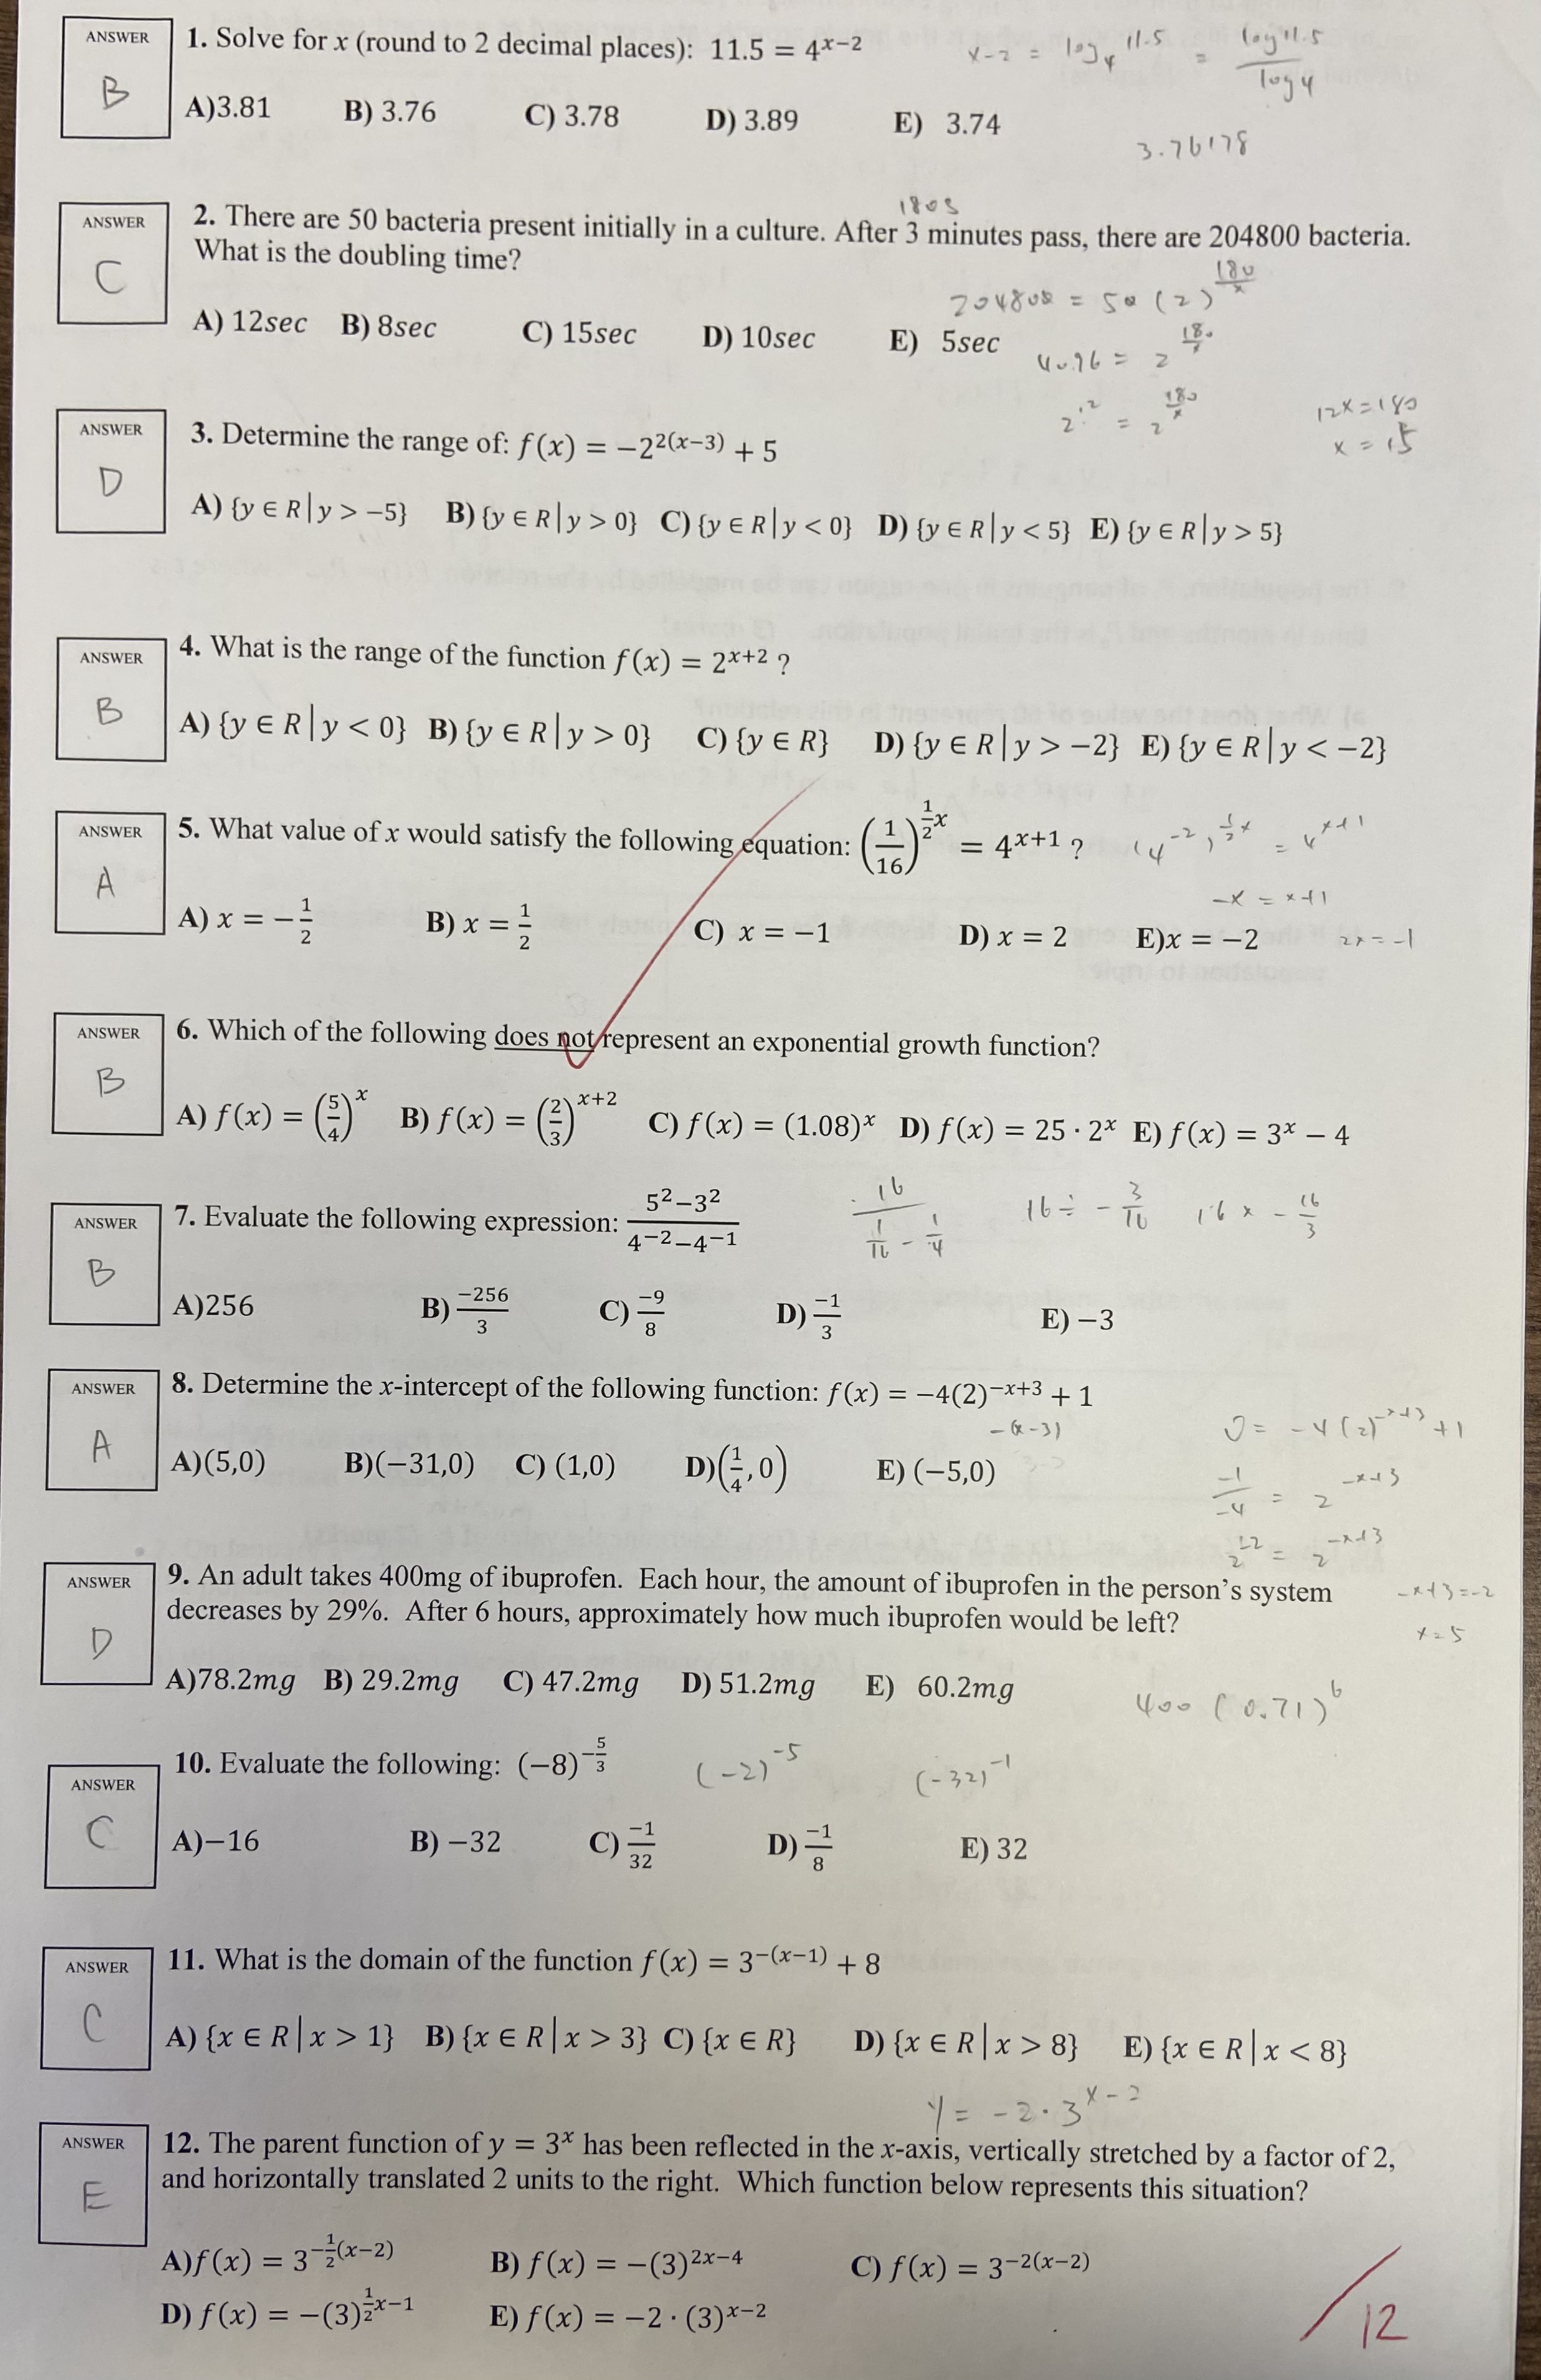 ANSWER
B
1. Solve for x (round to 2 decimal places): 11.5 = 4^(x−2)
x−2 = log₄ 11.5 = log 11.5 / log 4
A)3.81 B) 3.76 C) 3.78 D) 3.89 E) 3.74
3.76178
ANSWER
C
180s
2. There are 50 bacteria present initially in a culture. After 3 minutes pass, there are 204800 bacteria.
What is the doubling time?
204800 = 50 (2)^(180/x)
A) 12sec B) 8sec C) 15sec D) 10sec E) 5sec
4096 = 2^(180/x)
2^12 = 2^(180/x)
12x = 180
x = 15
ANSWER
D
3. Determine the range of: f(x) = −2^(2(x−3)) + 5
A) {y ∈ R|y > −5} B) {y ∈ R|y > 0} C) {y ∈ R|y < 0} D) {y ∈ R|y < 5} E) {y ∈ R|y > 5}
ANSWER
B
4. What is the range of the function f(x) = 2^(x+2) ?
A) {y ∈ R|y < 0} B) {y ∈ R|y > 0} C) {y ∈ R} D) {y ∈ R|y > −2} E) {y ∈ R|y < −2}
ANSWER
A
5. What value of x would satisfy the following equation: (1/16)^(1/2 x) = 4^(x+1) ?
(4^−2)^(1/2 x) = 4^(x+1)
−x = x+1
A) x = −1/2 B) x = 1/2 C) x = −1 D) x = 2 E)x = −2
2x = −1
ANSWER
B
6. Which of the following does not represent an exponential growth function?
A) f(x) = (5/4)^x B) f(x) = (2/3)^(x+2) C) f(x) = (1.08)^x D) f(x) = 25 · 2^x E) f(x) = 3^x − 4
ANSWER
B
7. Evaluate the following expression: (5²−3²)/(4^−2−4^−1)
16 / (1/16 − 1/4)
16 ÷ −3/16
16 × −16/3
A)256 B) −256/3 C) −9/8 D) −1/3 E) −3
ANSWER
A
8. Determine the x-intercept of the following function: f(x) = −4(2)^(−x+3) + 1
−(x−3)
0 = −4(2)^(−x+3) + 1
A)(5,0) B)(−31,0) C) (1,0) D)(1/4, 0) E) (−5,0)
−1/−4 = 2^(−x+3)
2^−2 = 2^(−x+3)
−x+3 = −2
x = 5
ANSWER
D
9. An adult takes 400mg of ibuprofen. Each hour, the amount of ibuprofen in the person's system
decreases by 29%. After 6 hours, approximately how much ibuprofen would be left?
A)78.2mg B) 29.2mg C) 47.2mg D) 51.2mg E) 60.2mg
400 (0.71)^6
ANSWER
C
10. Evaluate the following: (−8)^(−5/3)
(−2)^−5
(−32)^−1
A)−16 B) −32 C) −1/32 D) −1/8 E) 32
ANSWER
C
11. What is the domain of the function f(x) = 3^(−(x−1)) + 8
A) {x ∈ R|x > 1} B) {x ∈ R|x > 3} C) {x ∈ R} D) {x ∈ R|x > 8} E) {x ∈ R|x < 8}
y = −2 · 3^(x−2)
ANSWER
E
12. The parent function of y = 3^x has been reflected in the x-axis, vertically stretched by a factor of 2,
and horizontally translated 2 units to the right. Which function below represents this situation?
A)f(x) = 3^(−1/2(x−2)) B) f(x) = −(3)^(2x−4) C) f(x) = 3^(−2(x−2))
D) f(x) = −(3)^(1/2 x−1) E) f(x) = −2 · (3)^(x−2)
/12